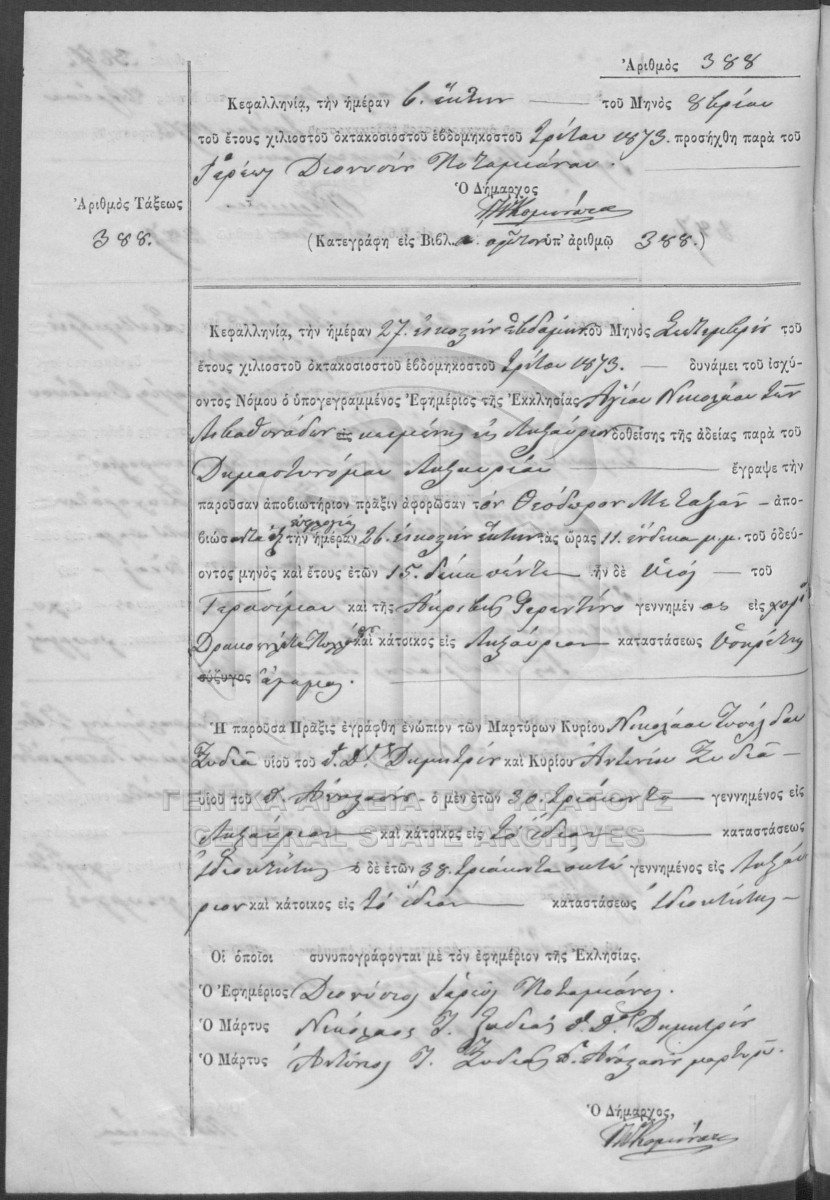 Ἀριθμὸς 388
Κεφαλληνίᾳ, τὴν ἡμέραν 6. ἕκτην τοῦ Μηνὸς 8βρίου
τοῦ ἔτους χιλιοστοῦ ὀκτακοσιοστοῦ ἑβδομηκοστοῦ τρίτου 1873. προσήχθη παρὰ τοῦ
Ἱερέως Διονυσίου Ποταμιάνου.
Ὁ Δήμαρχος
Ἀριθμὸς Τάξεως
388.
(Κατεγράφη εἰς Βιβλ. ὑπ' ἀριθμῷ 388.)
Κεφαλληνίᾳ, τὴν ἡμέραν 27. εἰκοστὴν ἑβδόμην τοῦ Μηνὸς Σεπτεμβρίου τοῦ
ἔτους χιλιοστοῦ ὀκτακοσιοστοῦ ἑβδομηκοστοῦ τρίτου 1873. δυνάμει τοῦ ἰσχύ
οντος Νόμου ὁ ὑπογεγραμμένος Ἐφημέριος τῆς Ἐκκλησίας Ἁγίου Νικολάου τῶν
κειμένης εἰς Ληξούριον δοθείσης τῆς ἀδείας παρὰ τοῦ
Δημαστυνόμου Ληξουρίου ἔγραψε τὴν
παροῦσαν ἀποβιωτήριον πρᾶξιν ἀφορῶσαν τὸν Θεόδωρον Μεταξᾶν – ἀπο-
βιώσαντα τὴν ἡμέραν 26. εἰκοστὴν ἕκτην τὰς ὥρας 11. ἕνδεκα μ.μ. τοῦ ὁδεύ-
οντος μηνὸς καὶ ἔτους ἐτῶν 15. δέκα πέντε ἦν δὲ υἱὸς τοῦ
Γερασίμου καὶ τῆς Ἀκριβῆς γεννημένος εἰς
καὶ κάτοικος εἰς Ληξούριον καταστάσεως ὑπηρέτης
σύζυγος ἄγαμος.
Ἡ παροῦσα Πρᾶξις ἐγράφθη ἐνώπιον τῶν Μαρτύρων Κυρίου Νικολάου
υἱοῦ τοῦ Δημητρίου καὶ Κυρίου Ἀντωνίου
υἱοῦ τοῦ ὁ μὲν ἐτῶν 30. τριάκοντα γεννημένος εἰς
ΓΕΝΙΚΑ ΑΡΧΕΙΑ ΤΟΥ ΚΡΑΤΟΥΣ
GENERAL STATE ARCHIVES
Ληξούριον καὶ κάτοικος εἰς τὸ ἴδιον καταστάσεως
ἰδιοκτήτης ὁ δὲ ἐτῶν 38. τριάκοντα οκτώ γεννημένος εἰς Ληξού
ριον καὶ κάτοικος εἰς τὸ ἴδιον καταστάσεως ἰδιοκτήτης –
Οἱ ὁποῖοι συνυπογράφονται μὲ τὸν ἐφημέριον τῆς Ἐκλησίας.
Ὁ Ἐφημέριος Διονύσιος ἱερεὺς Ποταμιάνος.
Ὁ Μάρτυς Νικόλαος Δημητρίου
Ὁ Μάρτυς Ἀντώνιος μαρτυρῶ.
Ὁ Δήμαρχος,